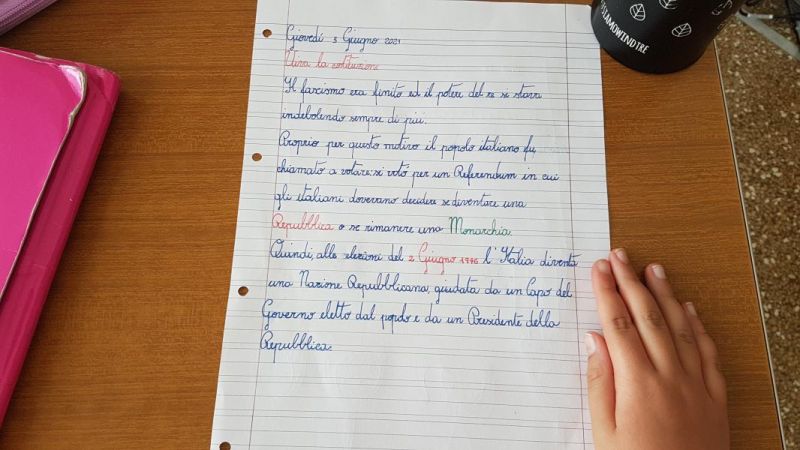 Giovedì 3 Giugno 2021
Viva la costituzione
Il fascismo era finito ed il potere del re si stava
indebolendo sempre di più.
Proprio per questo motivo il popolo italiano fu
chiamato a votare: si votò per un Referendum in cui
gli italiani dovevano decidere se diventare una
Repubblica o se rimanere una Monarchia.
Quindi, alle elezioni del 2 Giugno 1946 l'Italia diventò
una Nazione Repubblicana, guidata da un Capo del
Governo eletto dal popolo e da un Presidente della
Repubblica.
SIAMOWINDTRE